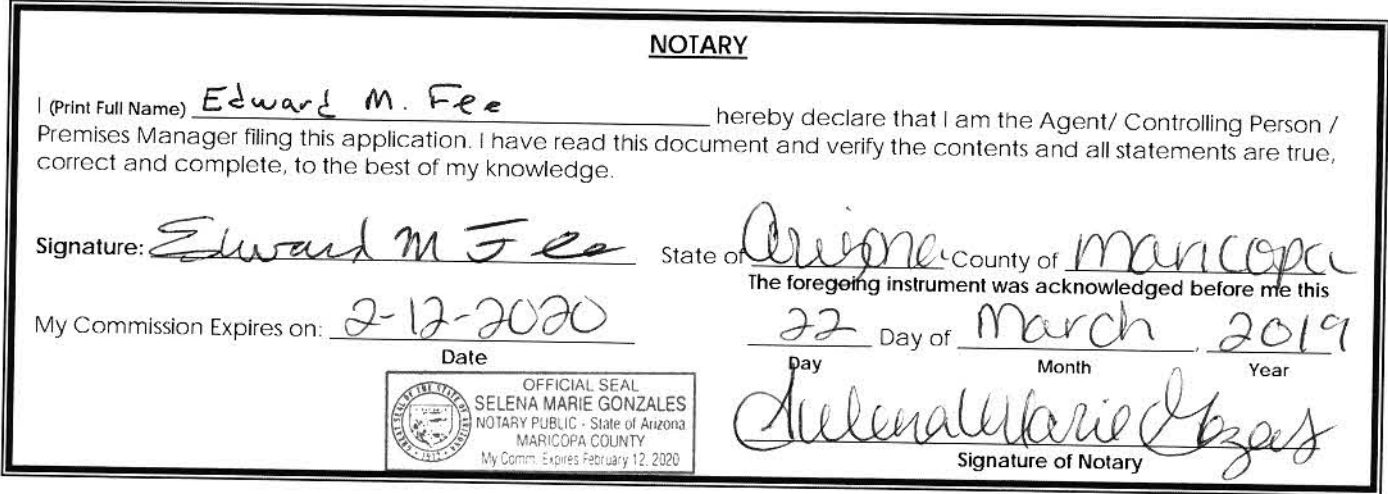 NOTARY
I (Print Full Name) Edward M. Fee hereby declare that I am the Agent/ Controlling Person /
Premises Manager filing this application. I have read this document and verify the contents and all statements are true,
correct and complete, to the best of my knowledge.
Signature: Edward M Fee State of Arizona County of Maricopa
The foregoing instrument was acknowledged before me this
My Commission Expires on: 2-12-2020 22 Day of March, 2019
Date Day Month Year
OFFICIAL SEAL
SELENA MARIE GONZALES
NOTARY PUBLIC - State of Arizona
MARICOPA COUNTY
My Comm. Expires February 12, 2020
GREAT SEAL OF THE STATE OF ARIZONA
1912
Selena Marie Gonzales
Signature of Notary